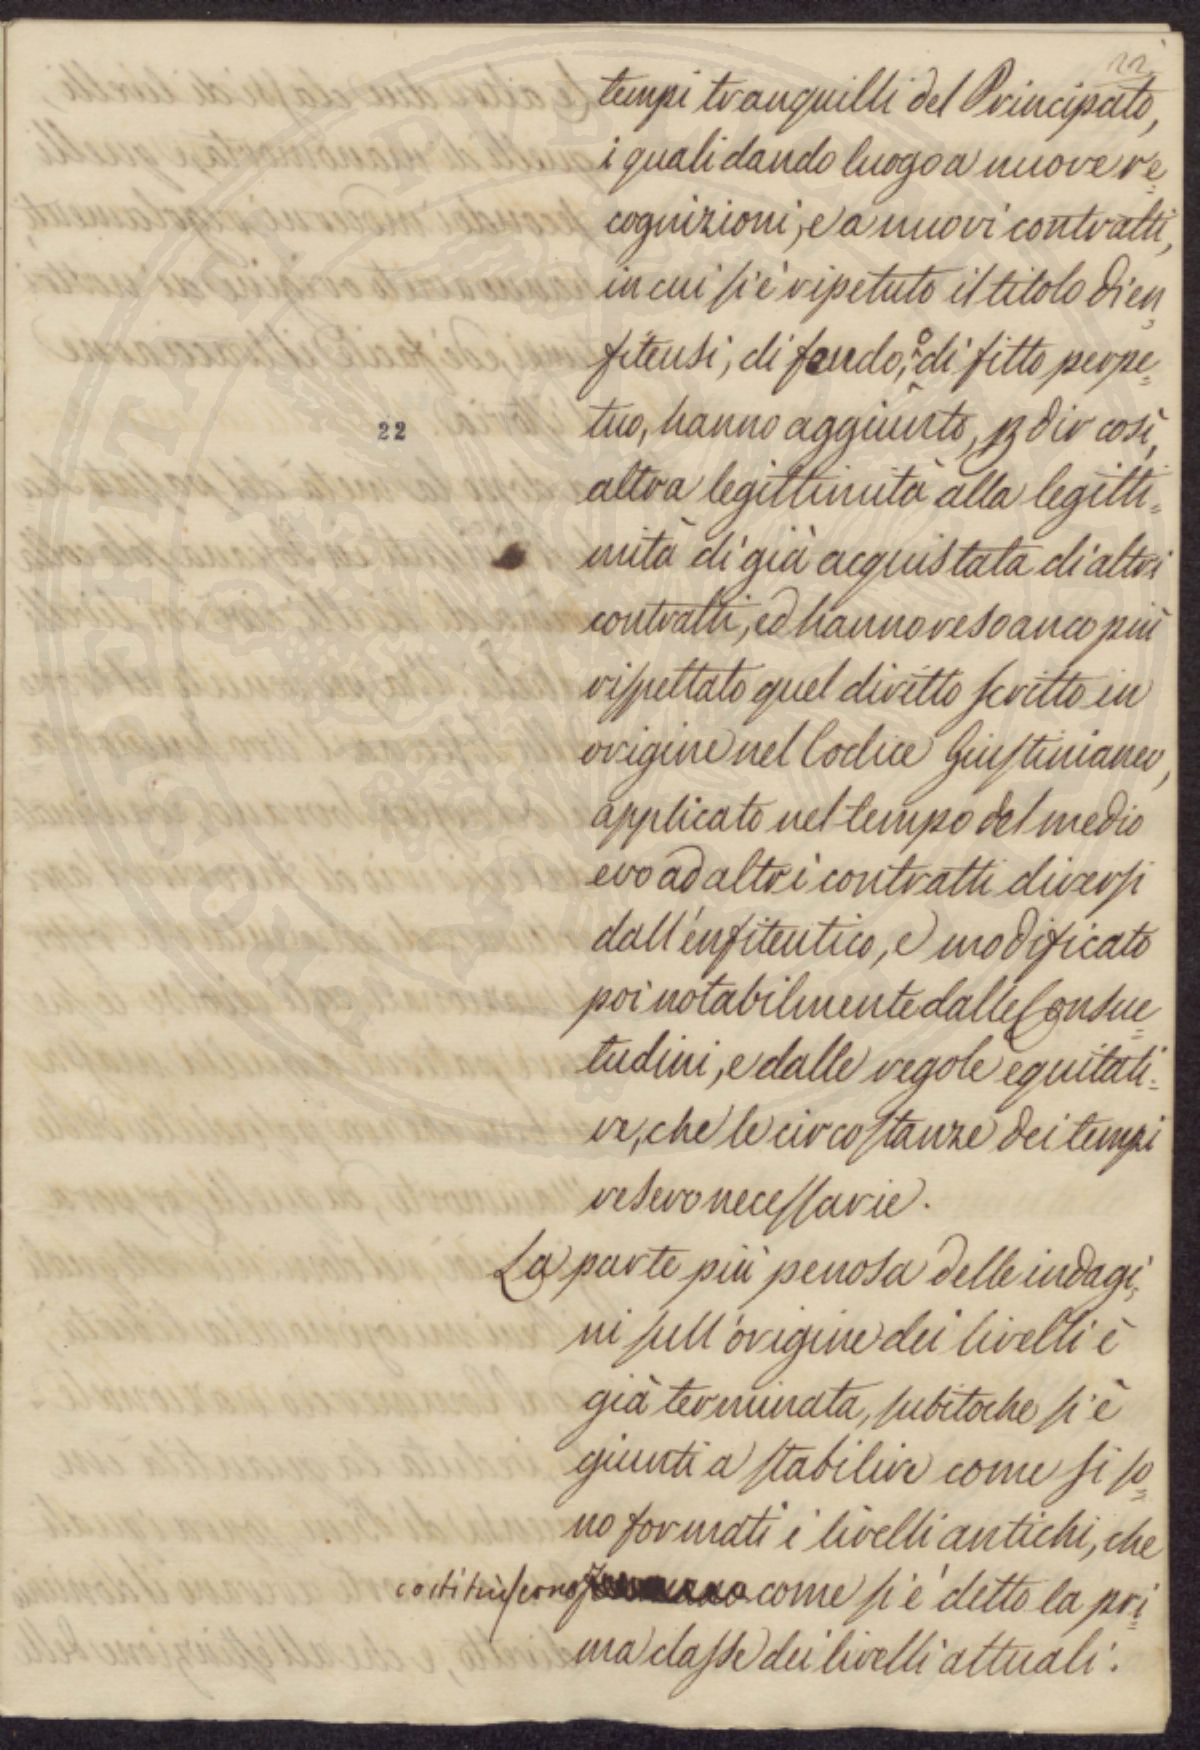 22.
tempi tranquilli del Principato,
i quali dando luogo a nuove re=
cognizioni, e a nuovi contratti,
in cui si è ripetuto il titolo di en=
fiteusi, di feudo, o di fitto perpe=
22
tuo, hanno aggiunto, p dir così,
altra legittimità alla legitti=
mità di già acquistata di altri
contratti, ed hanno reso anco più
rispettato quel diritto scritto in
origine nel Codice Giustinianeo,
applicato nel tempo del medio
evo ad altri contratti diversi
dall'enfiteutico, e modificato
poi notabilmente dalle Consue=
tudini, e dalle regole equitati=
ve, che le circostanze dei tempi
resero necessarie.
La parte più penosa delle indagi=
ni sull'origine dei livelli è
già terminata, subitoche si è
giunti a stabilire come si so=
no formati i livelli antichi, che
costituiscono come si è detto la pri=
ma classe dei livelli attuali.